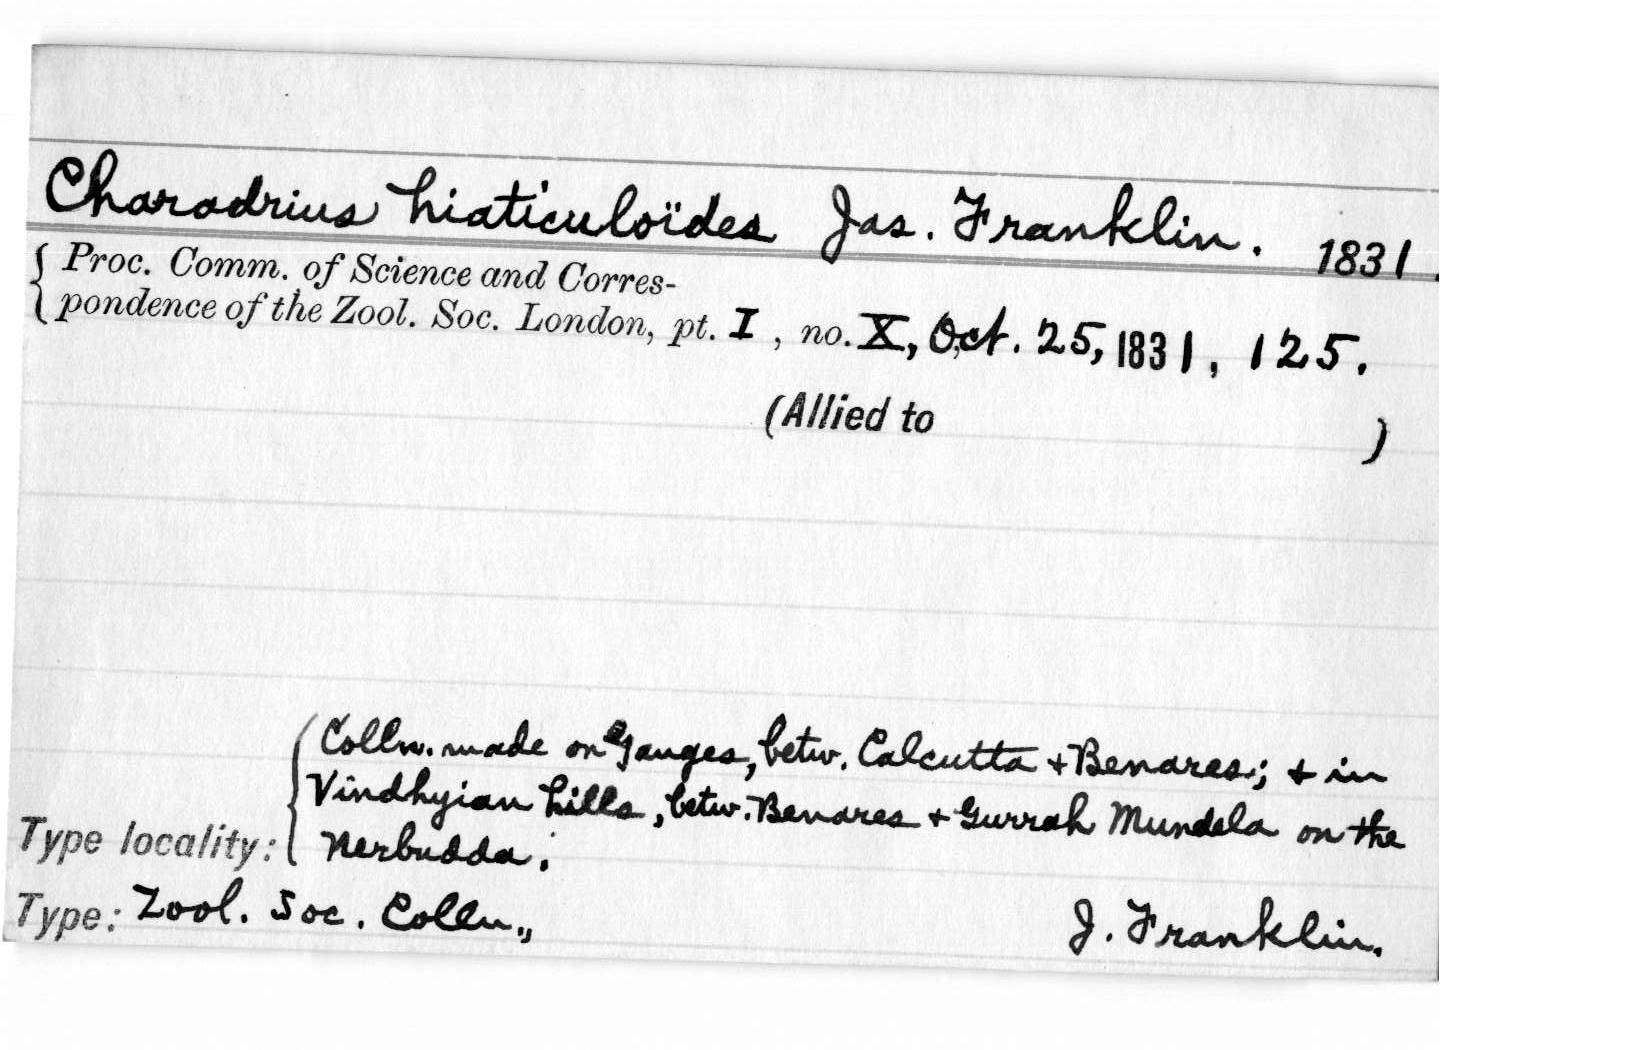 Charadrius hiaticuloïdes Jas. Franklin. 1831.
Proc. Comm. of Science and Corres-
pondence of the Zool. Soc. London, pt. I, no. X, Oct. 25, 1831, 125.
(Allied to )
Colln. made on Ganges, betw. Calcutta + Benares; + in
Vindhyian hills, betw. Benares + Gurrah Mundela on the
Type locality: Nerbudda.
Type: Zool. Soc. Colln., J. Franklin.